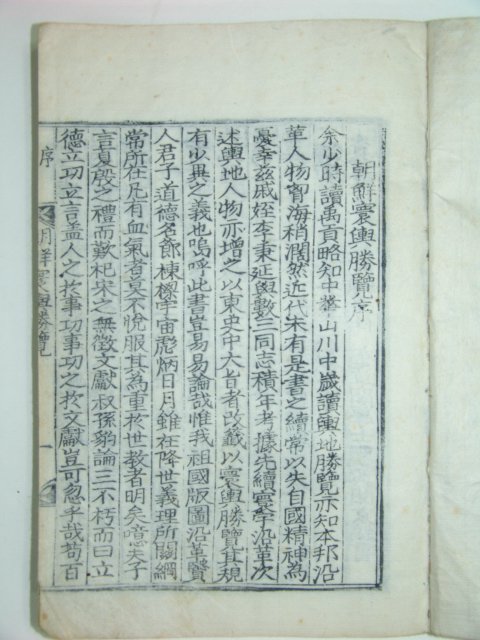 朝鮮寰輿勝覽序
余少時讀禹貢略知中華山川中歲讀輿地勝覽亦知本邦沿
革人物胷海稍濶然近代未有是書之續常以失自國精神爲
憂幸玆戚姪李秉延與數三同志積年考據先續寰宇沿革次
述輿地人物亦增之以東史中大旨者改籤以寰輿勝覽其規
有少異之義也嗚呼此書豈易易論哉惟我祖國版圖沿革賢
人君子道德名節棟樑宇宙彪炳日月雖在降世義理所關綱
常所在凡有血氣者莫不悅服其爲重於世敎者明矣噫夫子
言夏殷之禮而歎杞宋之無徵文獻叔孫豹論三不朽而曰立
德立功立言盖人之於事功事功之於文獻豈可忽乎哉苟百
序
朝鮮寰輿勝覽
一